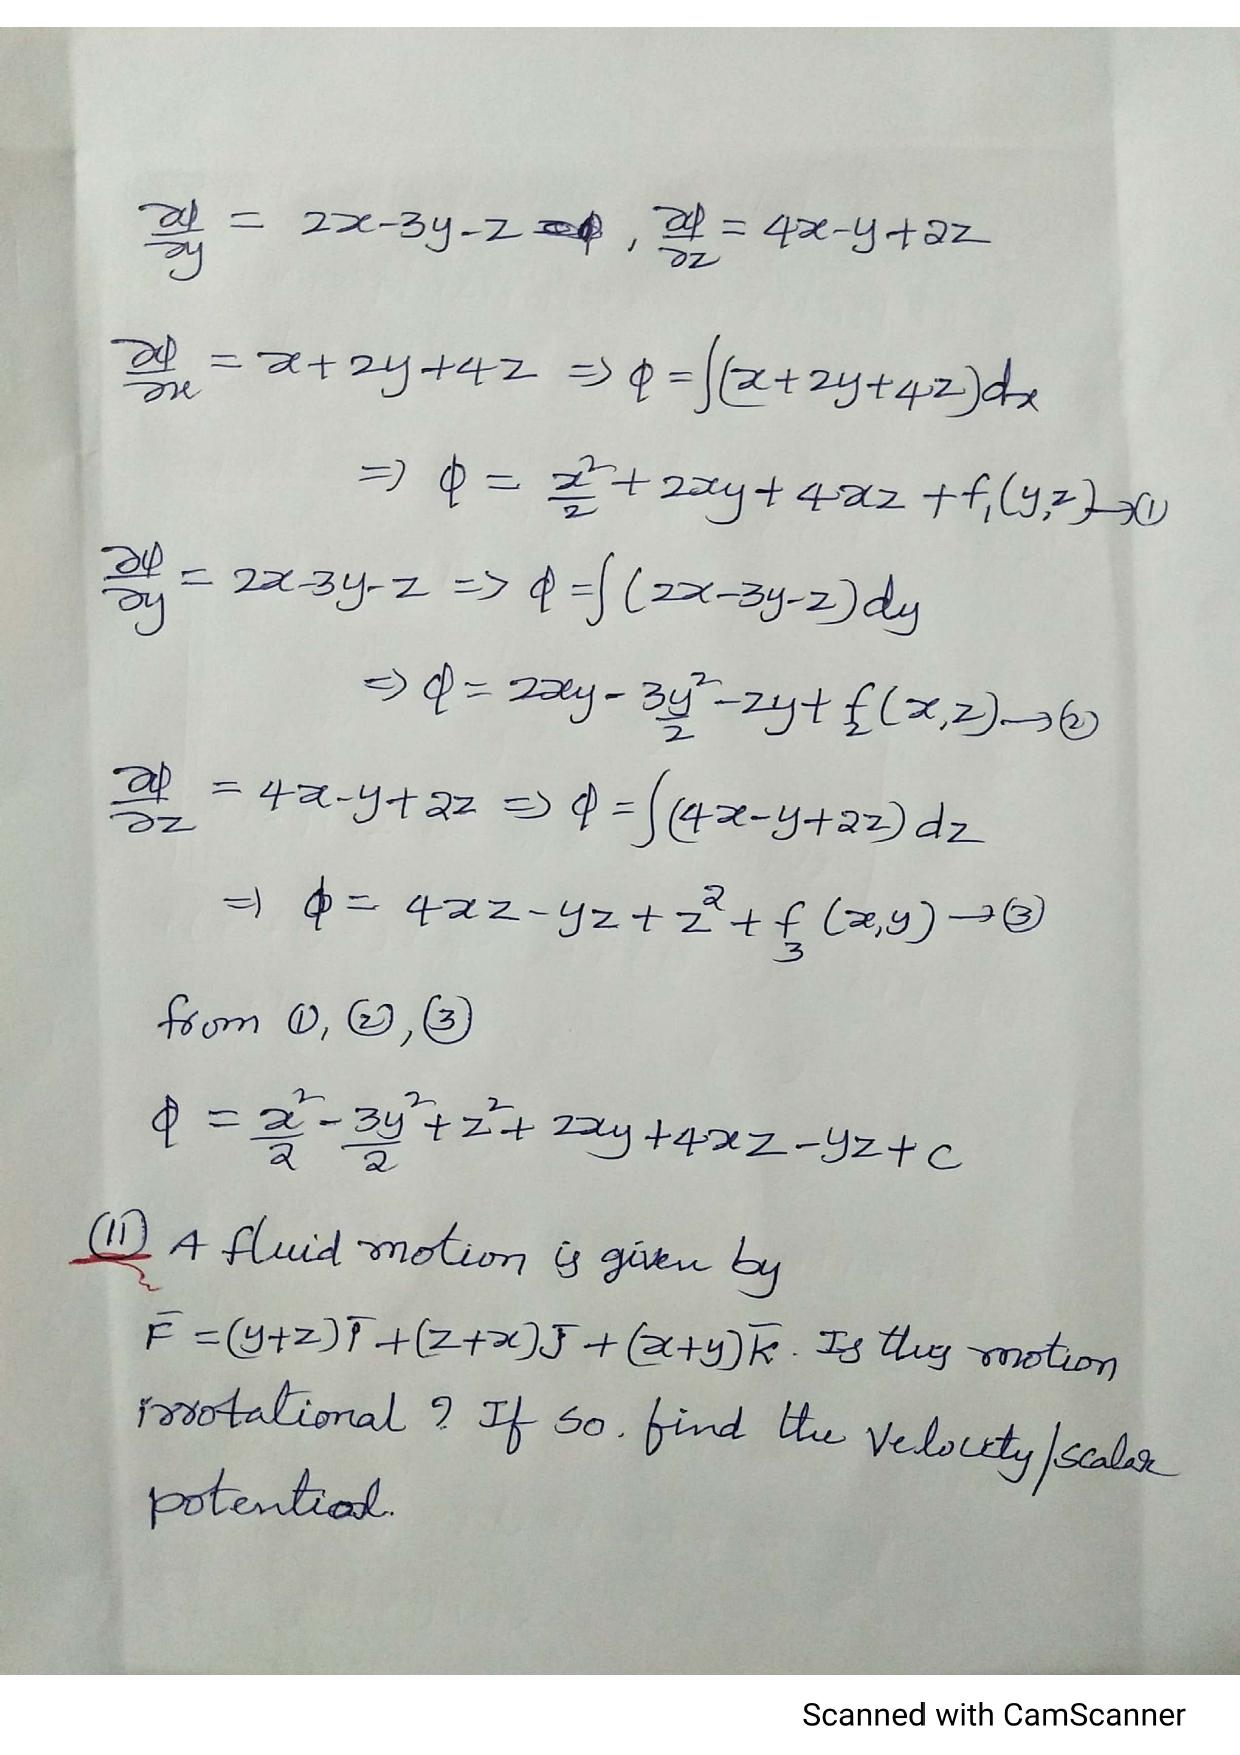 ∂φ/∂y = 2x-3y-z , ∂φ/∂z = 4x-y+2z
∂φ/∂x = x+2y+4z => φ = ∫(x+2y+4z)dx
=> φ = x²/2 + 2xy + 4xz + f₁(y,z) → ①
∂φ/∂y = 2x-3y-z => φ = ∫(2x-3y-z)dy
=> φ = 2xy - 3y²/2 - zy + f₂(x,z) → ②
∂φ/∂z = 4x-y+2z => φ = ∫(4x-y+2z)dz
=> φ = 4xz-yz+z²+f₃(x,y) → ③
from ①, ②, ③
φ = x²/2 - 3y²/2 + z² + 2xy + 4xz - yz + c
(11) A fluid motion is given by
F̄ = (y+z)ī + (z+x)j̄ + (x+y)k̄. Is this motion
irrotational? If so. find the velocity/scalar
potential.
Scanned with CamScanner